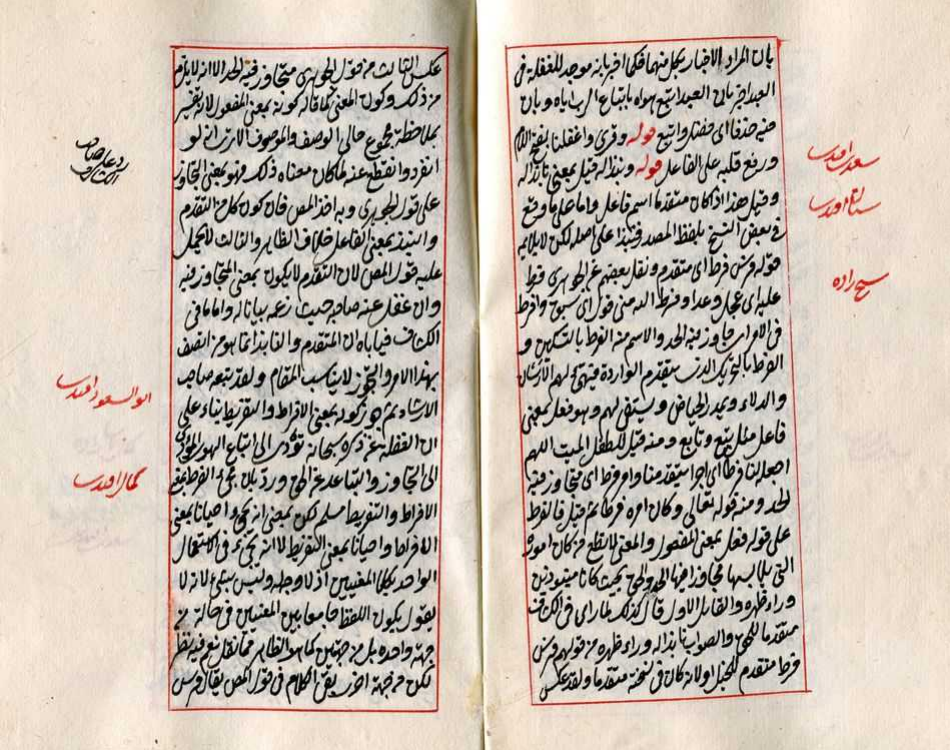 بان المراد الاخبار بكل منهما فكما اخبر بانه موجد للغفلة فى
العبد اخبر بان العبد اتبع هواه باتباع وبان
فيه حذفا اى واتبع قوله وقرئ واغفلنا بفتح اللام
ورفع قلبه على الفاعل قوله ونبذا له قيل بمعنى نابذا له
وقيل هذا اذا كان متقدما اسم فاعل واما على ما وقع
فى بعض النسخ بلفظ المصدر فنبذا على اصله لكن لا يلايمه
قوله فرس فرط اى متقدم ونقل بعضهم عن الجوهرى فرط
عليه اى عجل وعدا وفرط اليه منى قول اى سبق وافرط
فى الامر اى جاوز فيه الحد والاسم منه الفرط بالتسكين و
الفرط بالتحريك الذى يتقدم الواردة فيهيئ لهم الارسان
والدلاء ويمدر الحياض ويستقى لهم وهو فعل بمعنى
فاعل مثل تبع وتابع ومنه قيل للطفل الميت اللهم
اجعله لنا فرطا اى اجرا يتقدمنا وامر فرط اى متجاوز فيه
الحد ومنه قوله تعالى وكان امره فرطا ثم قيل فالفرط
على قوله فعل بمعنى المفعول والمعنى من كان اموره
التى يلابسها مجاوزا فيها الحد والحق بحيث كانا منبوذين
وراء ظهره والقائل الاول قال كذلك لما راى فى الكشاف
متقدما للحق والصواب نابذا له وراء ظهره من قولهم فرس
فرط متقدم للخيل اولانه كان فى نسخته متقدما ولقد عكس
سعدى افندى
سنان افندى
شيخ زاده
عكس الثالث من قول الجوهرى متجاوز فيه الحد الا انه لا يلزم
من ذلك وكون المعنى كما قاله كونه بمعنى المفعول لانه تفسير
بملاحظة مجموع حالى الوصف والموصوف الا ترى انه لو
انفرد وانقطع عنه لما كان معناه ذلك فهو بمعنى التجاوز
على قول الجوهرى وبه اخذ المص فان كون كل من التقدم
والنبذ بمعنى الفاعل خلاف الظاهر والثالث لا يحمل
عليه قول المص لان التقدم لا يكون بمعنى المتجاوز فيه
وان غفل عنه صاحبه حيث زعمه بيانا له واما ما فى
الكشاف فيا باه ان المتقدم والنابذ انما هو من اتصف
بهذا الامر والتجوز لا يناسب المقام ولقد تبعه صاحب
الارشاد ثم جوز كونه بمعنى الافراط والتفريط بناء على
ان الغفلة عن ذكره سبحانه تؤدى الى اتباع الهوى المؤدى
الى التجاوز والتباعد عن الحق ورد بان مجئ الفرط بمعنى
الافراط والتفريط مسلم لكن بمعنى انه يجئ احيانا بمعنى
الافراط واحيانا بمعنى التفريط لا انه يجئ فى الاستعمال
الواحد بكلا المعنيين اذ لا وجه له وليس بشئ لانه لا
يقول بكون اللفظ جامعا بين المعنيين فى حالة من
جهة واحدة بل من جهتين كما هو الظاهر مما نقل نعم فيه نظر
لكن من جهة اخرى بقى الكلام فى قول المص يقال فرس
رد على صاحب
الكشاف
ابو السعود افندى
كمال افندى